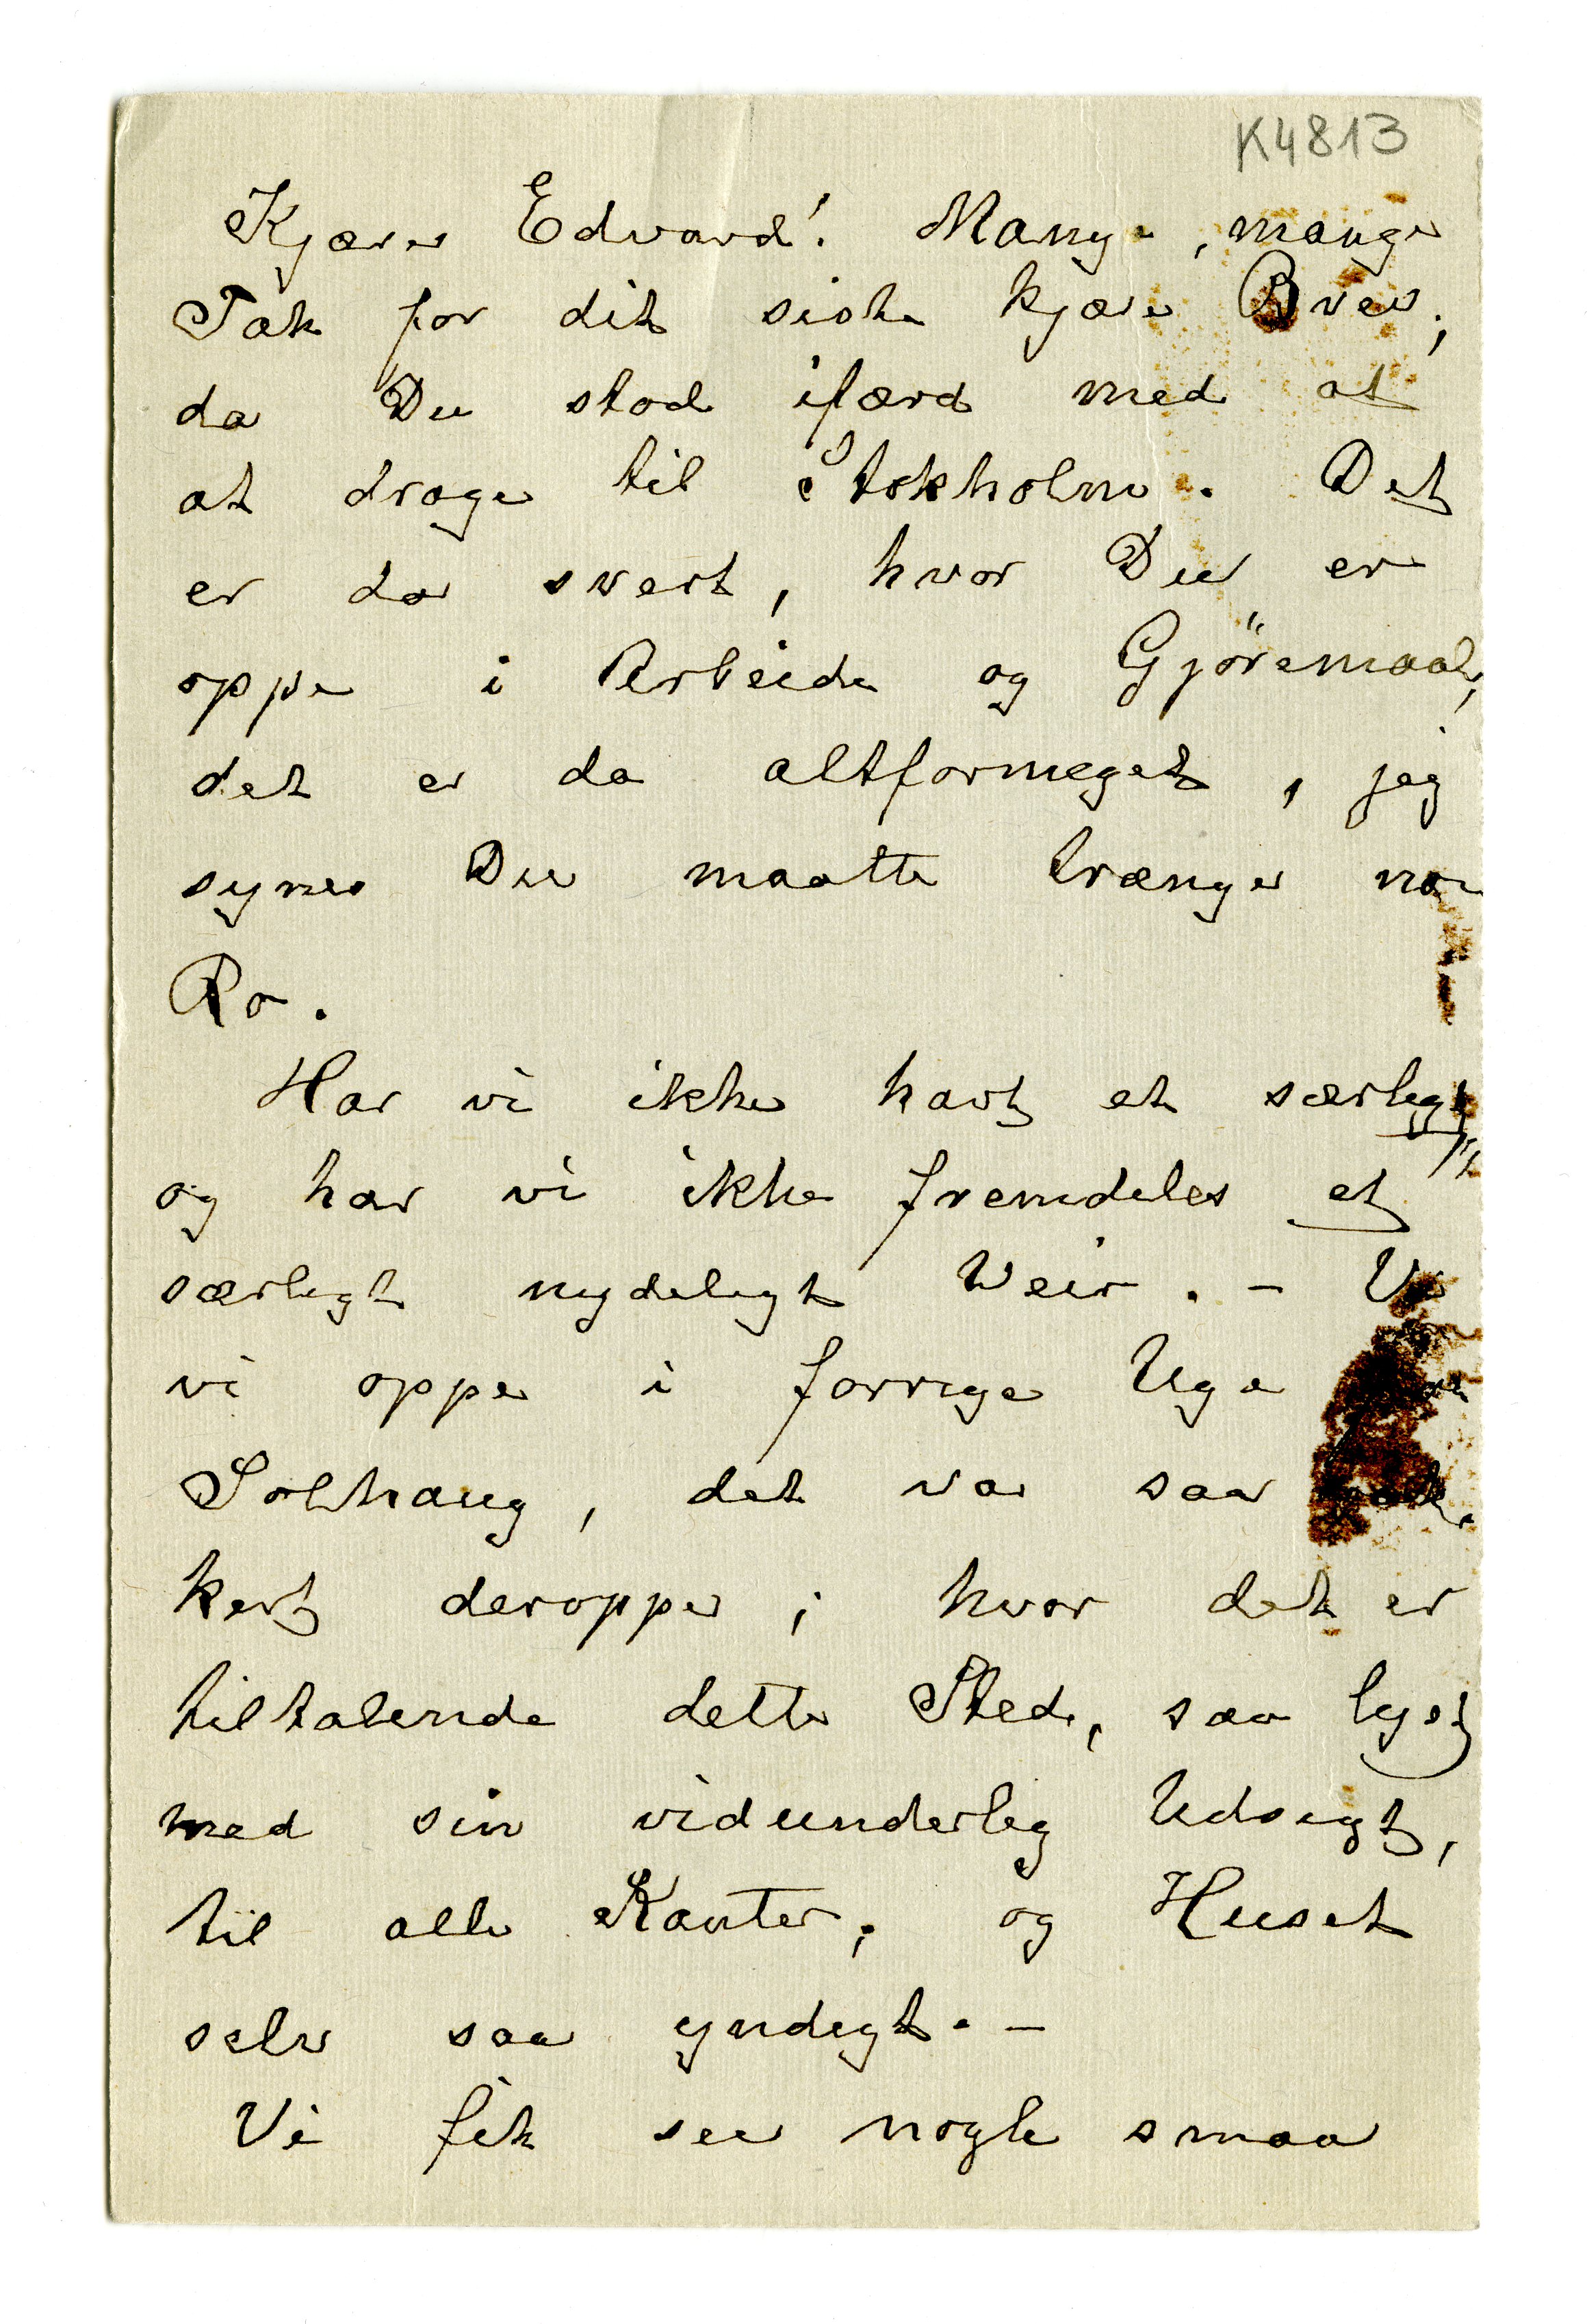 K4813
Kjære Edvard! Mange, mange
Tak for dit siste kjære Brev,
da Du stod ifærd med at
at drage til Stokholm. Det
er da svert, hvor Du er
oppe i Arbeide og Gjöremaal,
det er da altformeget, jeg
synes Du maatte trænge
Ro.
Har vi ikke havt et særligt
og har vi ikke fremdeles et
særligt nydeligt Veir. – Vi
vi oppe i forrige Uge
Solhaug, det var saa
kert deroppe, hvor det er
tiltalende dette Sted, saa lyst
med sin vidunderlig Udsigt,
til alle Kanter, og Huset
selv saa yndigt. –
Vi fik see nogle smaa